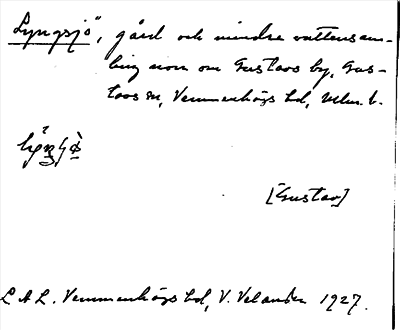 "Lyngsjö", gård och mindre vattensam-
ling norr om Gustavs by, Gus-
tavs sn, Vemmenhögs hd, Mlm. l.
[Gustav]
L A L. Vemmenhögs hd, V. Velander 1927.